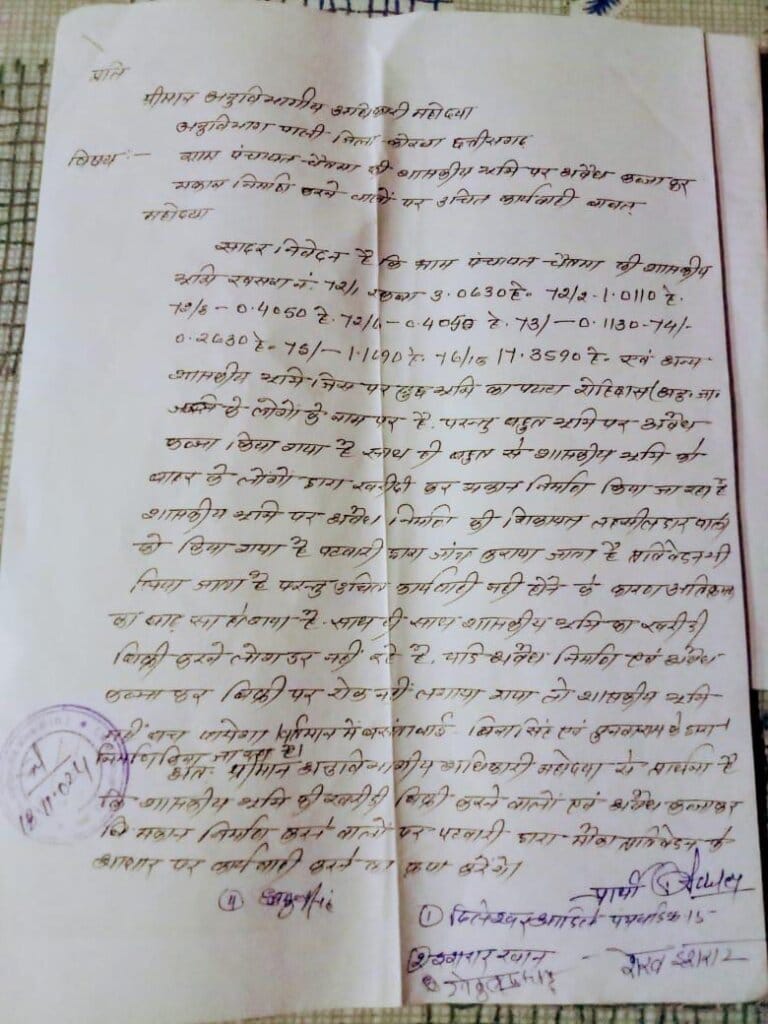 प्रति
श्रीमान अनुविभागीय अधिकारी महोदया
अनुविभाग पाली जिला-कोरबा छत्तीसगढ़
विषय :- ग्राम पंचायत चैतमा की शासकीय भूमि पर अवैध कब्जा कर
मकान निर्माण करने वालों पर उचित कार्यवाही बाबत्
महोदया
सादर निवेदन है कि ग्राम पंचायत चैतमा की शासकीय
भूमि खसरा नं. 72/1 रकबा 3.0630 हे. 72/2-1.0110 हे.
72/3-0.4050 हे. 72/6-0.4050 हे. 73/-0.1130-74/-
0.2630 हे. 75/-1.1690 हे. 76/1 17.3590 हे. एवं अन्य
शासकीय भूमि जिस पर कुछ भूमि का पट्टा (अनु. जा.
के लोगों के नाम पर है. परन्तु बहुत भूमि पर अवैध
कब्जा किया गया है साथ ही बहुत से शासकीय भूमि को
बाहर के लोगों द्वारा खरीदी कर मकान निर्माण किया जा रहा है
शासकीय भूमि पर अवैध निर्माण की शिकायत तहसीलदार पाली
को किया गया है पटवारी द्वारा जांच कराया जाता है प्रतिवेदन भी
दिया जाता है परन्तु उचित कार्यवाही नहीं होने के कारण अतिक्रमण
का बाढ़ सा हो गया है. साथ ही साथ शासकीय भूमि का खरीदी
बिक्री करने लोग डर नहीं रहे है. यदि अवैध निर्माण एवं अवैध
कब्जा कर बिक्री पर रोक नहीं लगाया गया तो शासकीय भूमि
नहीं बच पायेगा वर्तमान में सिंह एवं के द्वारा
निर्माण किया जा रहा है।
अतः श्रीमान अनुविभागीय अधिकारी महोदया से प्रार्थना है
कि शासकीय भूमि की खरीदी बिक्री करने वालों एवं अवैध कब्जा कर
मकान निर्माण करने वालों पर पटवारी द्वारा मौका प्रतिवेदन के
आधार पर कार्यवाही करने का कृपा करेंगे।
18.11.024
प्रार्थी
(4)
(1) दिलेश्वर आदिले पंच वार्ड क्र 15
(2) खान - शेख इशरार
(3)